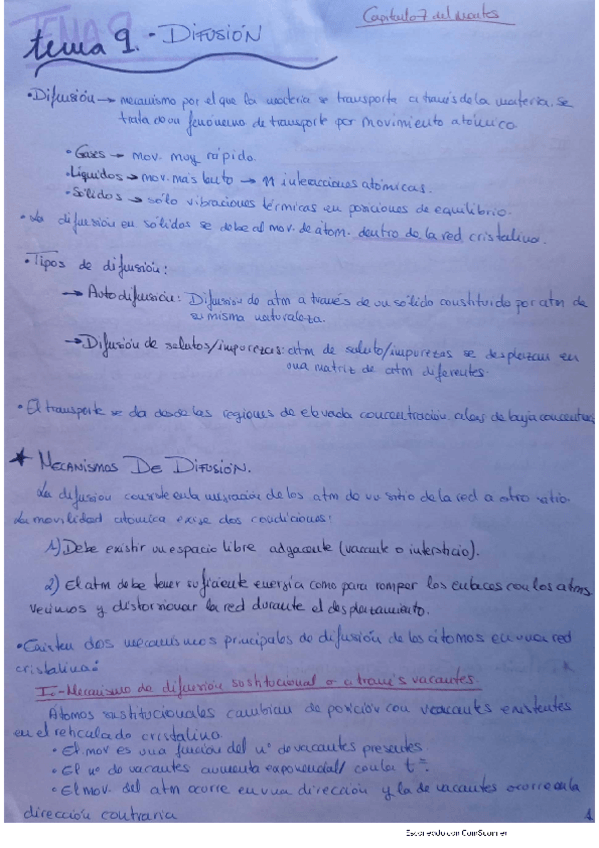 Capítulo 7 del Montes
tema 9.- DIFUSIÓN
• Difusión → mecanismo por el que la materia se transporta a través de la materia. Se
trata de un fenómeno de transporte por movimiento atómico.
• Gases → mov. muy rápido.
• Líquidos → mov. más lento → interacciones atómicas.
• Sólidos → sólo vibraciones térmicas en posiciones de equilibrio.
• La difusión en sólidos se debe al mov. de átom. dentro de la red cristalina.
• Tipos de difusión:
→ Autodifusión: Difusión de atm a través de un sólido constituido por atm de
su misma naturaleza.
→ Difusión de solutos/impurezas: atm de soluto/impurezas se desplazan en
una matriz de atm diferentes.
• El transporte se da desde las regiones de elevada concentración a las de baja
★ MECANISMOS DE DIFUSIÓN.
La difusión consiste en la migración de los atm de un sitio de la red a otro sitio.
La movilidad atómica exige dos condiciones:
1) Debe existir un espacio libre adyacente (vacante o intersticio).
2) El atm debe tener suficiente energía como para romper los enlaces con los atms
vecinos y distorsionar la red durante el desplazamiento.
• Existen dos mecanismos principales de difusión de los átomos en una red
cristalina:
I.- Mecanismo de difusión sustitucional o a través vacantes.
Átomos sustitucionales cambian de posición con vacantes existentes
en el reticulado cristalino
• El mov es una función del nº de vacantes presentes
• El nº de vacantes aumenta exponencial/ con la tª.
• El mov. del atm ocurre en una dirección y la de vacantes ocurre en la
dirección contraria
1
Escaneado con CamScanner